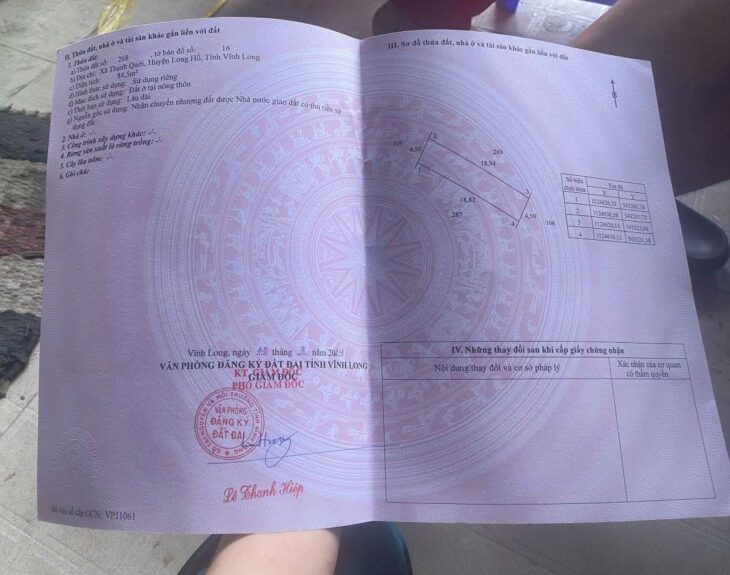 II. Thửa đất, nhà ở và tài sản khác gắn liền với đất
1. Thửa đất:
a) Thửa đất số: 268 , tờ bản đồ số: 16
b) Địa chỉ: Xã Thanh Quới, Huyện Long Hồ, Tỉnh Vĩnh Long
c) Diện tích: 84,5m²
d) Hình thức sử dụng: Sử dụng riêng
đ) Mục đích sử dụng: Đất ở tại nông thôn
e) Thời hạn sử dụng: Lâu dài
g) Nguồn gốc sử dụng: Nhận chuyển nhượng đất được Nhà nước giao đất có thu tiền sử
dụng đất
2. Nhà ở: -/-
3. Công trình xây dựng khác: -/-
4. Rừng sản xuất là rừng trồng: -/-
5. Cây lâu năm: -/-
6. Ghi chú:
Vĩnh Long, ngày tháng năm
VĂN PHÒNG ĐĂNG KÝ ĐẤT ĐAI TỈNH VĨNH LONG
GIÁM ĐỐC
KT. GIÁM ĐỐC
PHÓ GIÁM ĐỐC
SỞ TÀI NGUYÊN VÀ MÔI TRƯỜNG TỈNH VĨNH LONG
VĂN PHÒNG
ĐĂNG KÝ
ĐẤT ĐAI
Lê Thanh Hiệp
Số vào sổ cấp GCN: VP11061
III. Sơ đồ thửa đất, nhà ở và tài sản khác gắn liền với đất
B
106
2
4,50
269
18.94
1
3
18.82
4,50
106
4
267
Số hiệu đỉnh thửa Tọa độ
X Y
1 543205,76
2 543207,73
3 1124620,14 543223,66
4 543221,58
IV. Những thay đổi sau khi cấp giấy chứng nhận
Nội dung thay đổi và cơ sở pháp lý
Xác nhận của cơ quan
có thẩm quyền